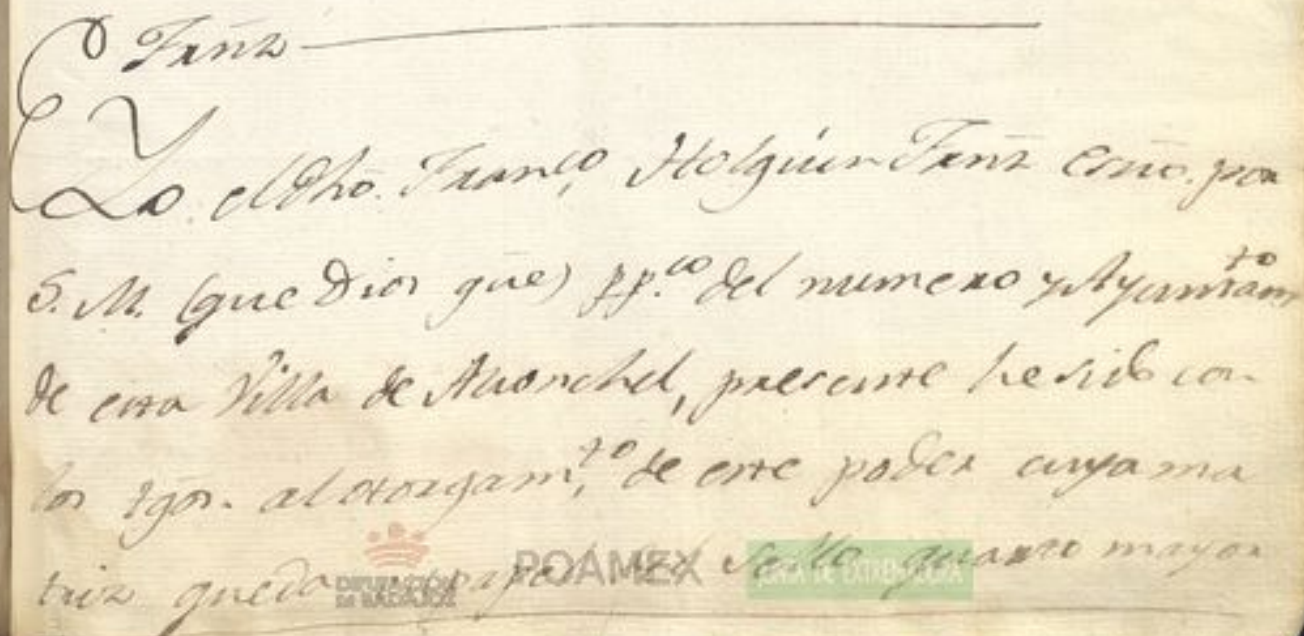 Frñz
Yo el dho. Franco, Holguin Frñz Esno. por
S. M. (que Dios gûe) pp.co del numero y Ayuntamto
de esta Villa de Alconchel, presente he sido con
los tgos. al otorgamto, de este poder cuya ma
triz queda papel del sello quarto mayor
DIPUTACIÓN DE BADAJOZ
POAMEX
JUNTA DE EXTREMADURA